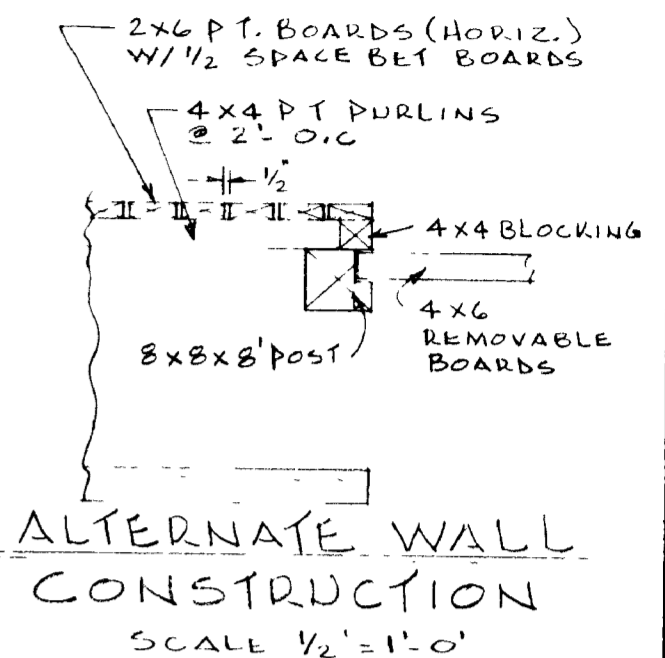 2x6 PT. BOARDS (HORIZ.)
W/ 1/2 SPACE BET BOARDS
4x4 PT PURLINS
@ 2'- O.C
1/2"
4x4 BLOCKING
4x6
REMOVABLE
BOARDS
8x8x8' POST
ALTERNATE WALL
CONSTRUCTION
SCALE 1/2' = 1'-0'